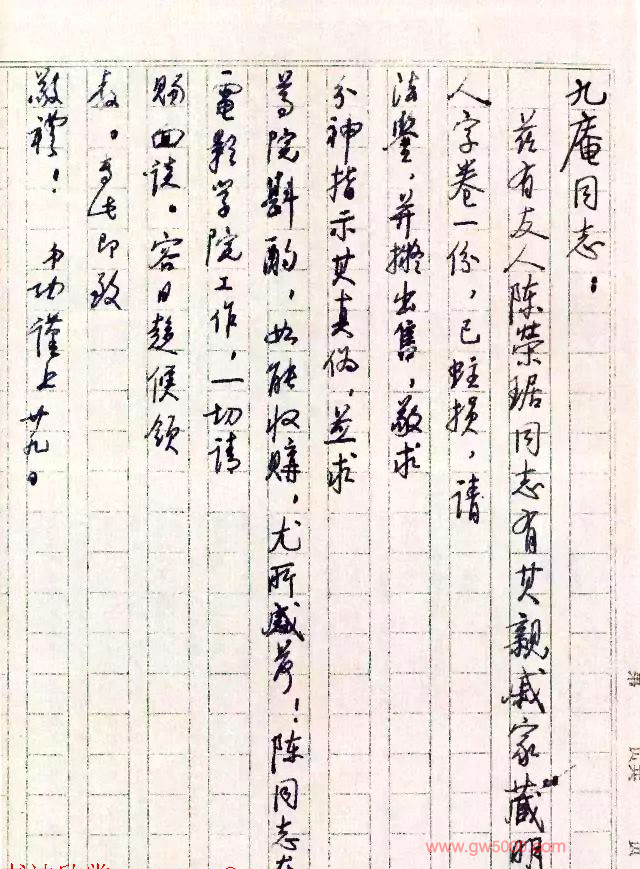 九庵同志：
兹有友人陈荣琚同志有其親戚家藏明
人字卷一份，已蛀损，请
法鉴，并擬出售，敬求
分神指示其真伪，並求
尊院斟酌，如能收購，尤所感荷！陈同志在
電影学院工作，一切请
赐面谈。容日趋候领
教。专此即致
敬禮！ 功谨上 廿九日
www.gw500
.com